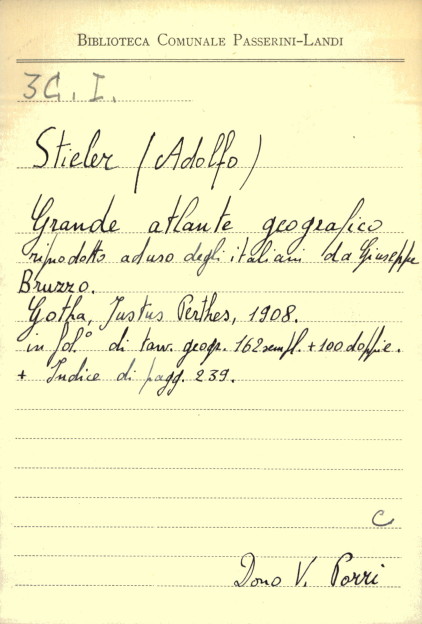 BIBLIOTECA COMUNALE PASSERINI-LANDI
3G. I.
Stieler (Adolfo)
Grande atlante geografico
riprodotto ad uso degli italiani da Giuseppe
Bruzzo.
Gotha, Justus Perthes, 1908.
in fol.º di tav. geogr. 162 sempl. + 100 doppie.
+ Indice di pagg. 239.
C
Dono V. Porri